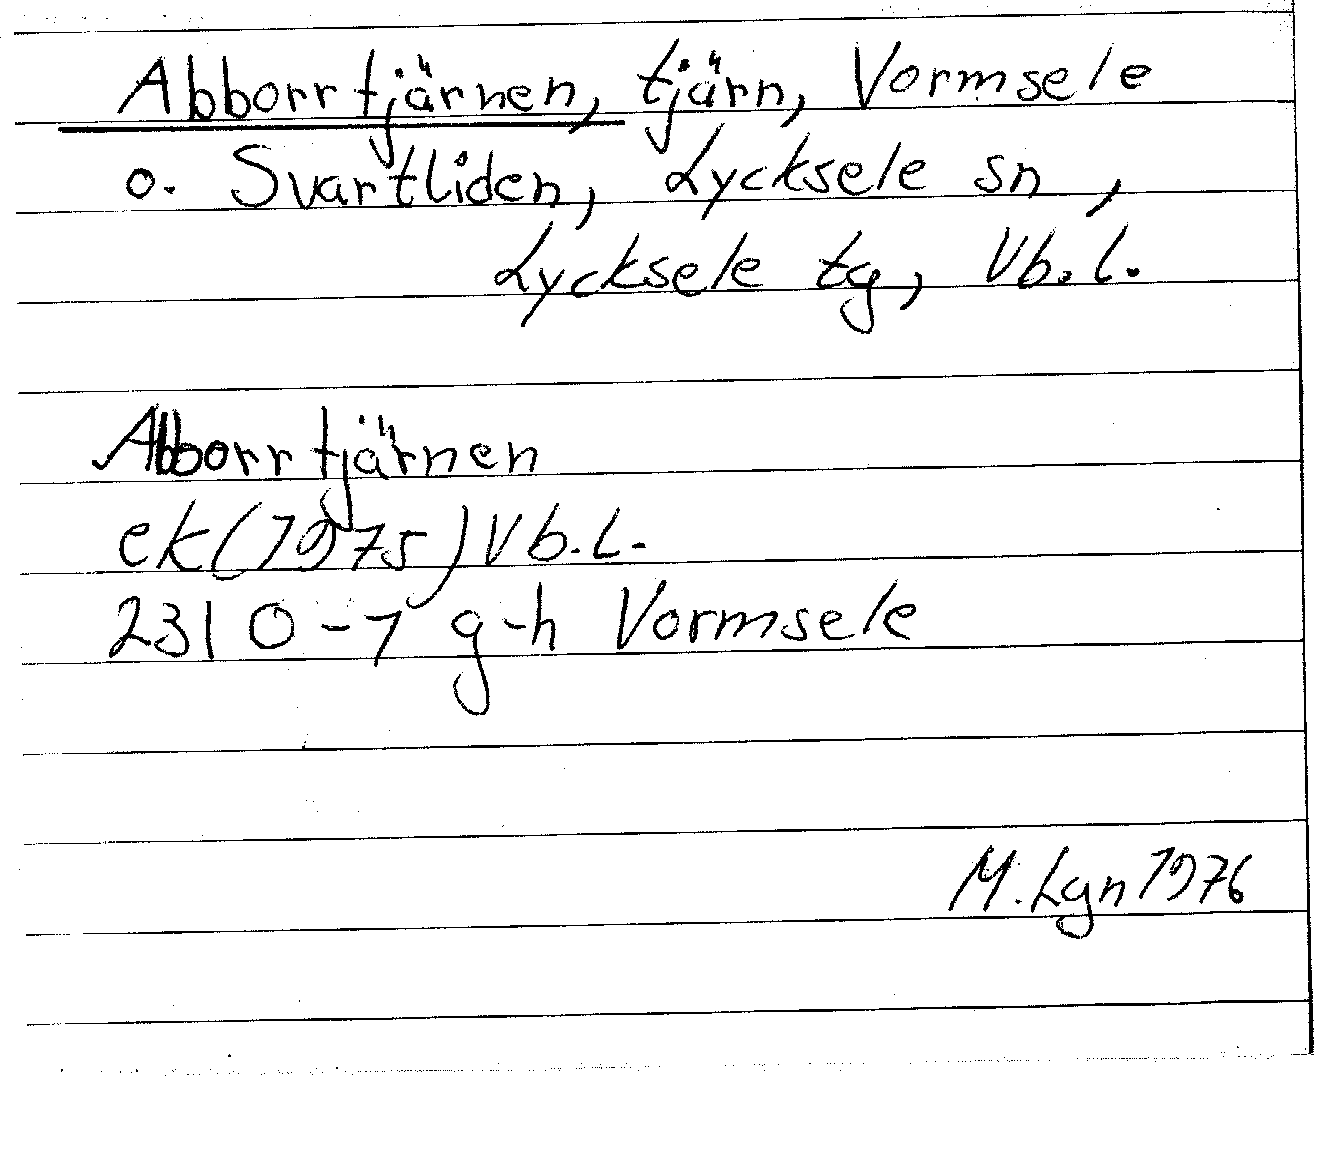 Abborrtjärnen, tjärn, Vormsele
o. Svartliden, Lycksele sn,
Lycksele tg, Vb.l.
Abborrtjärnen
ek(1975)Vb.L.
231 0-1 g-h Vormsele
M.Lgn 1976